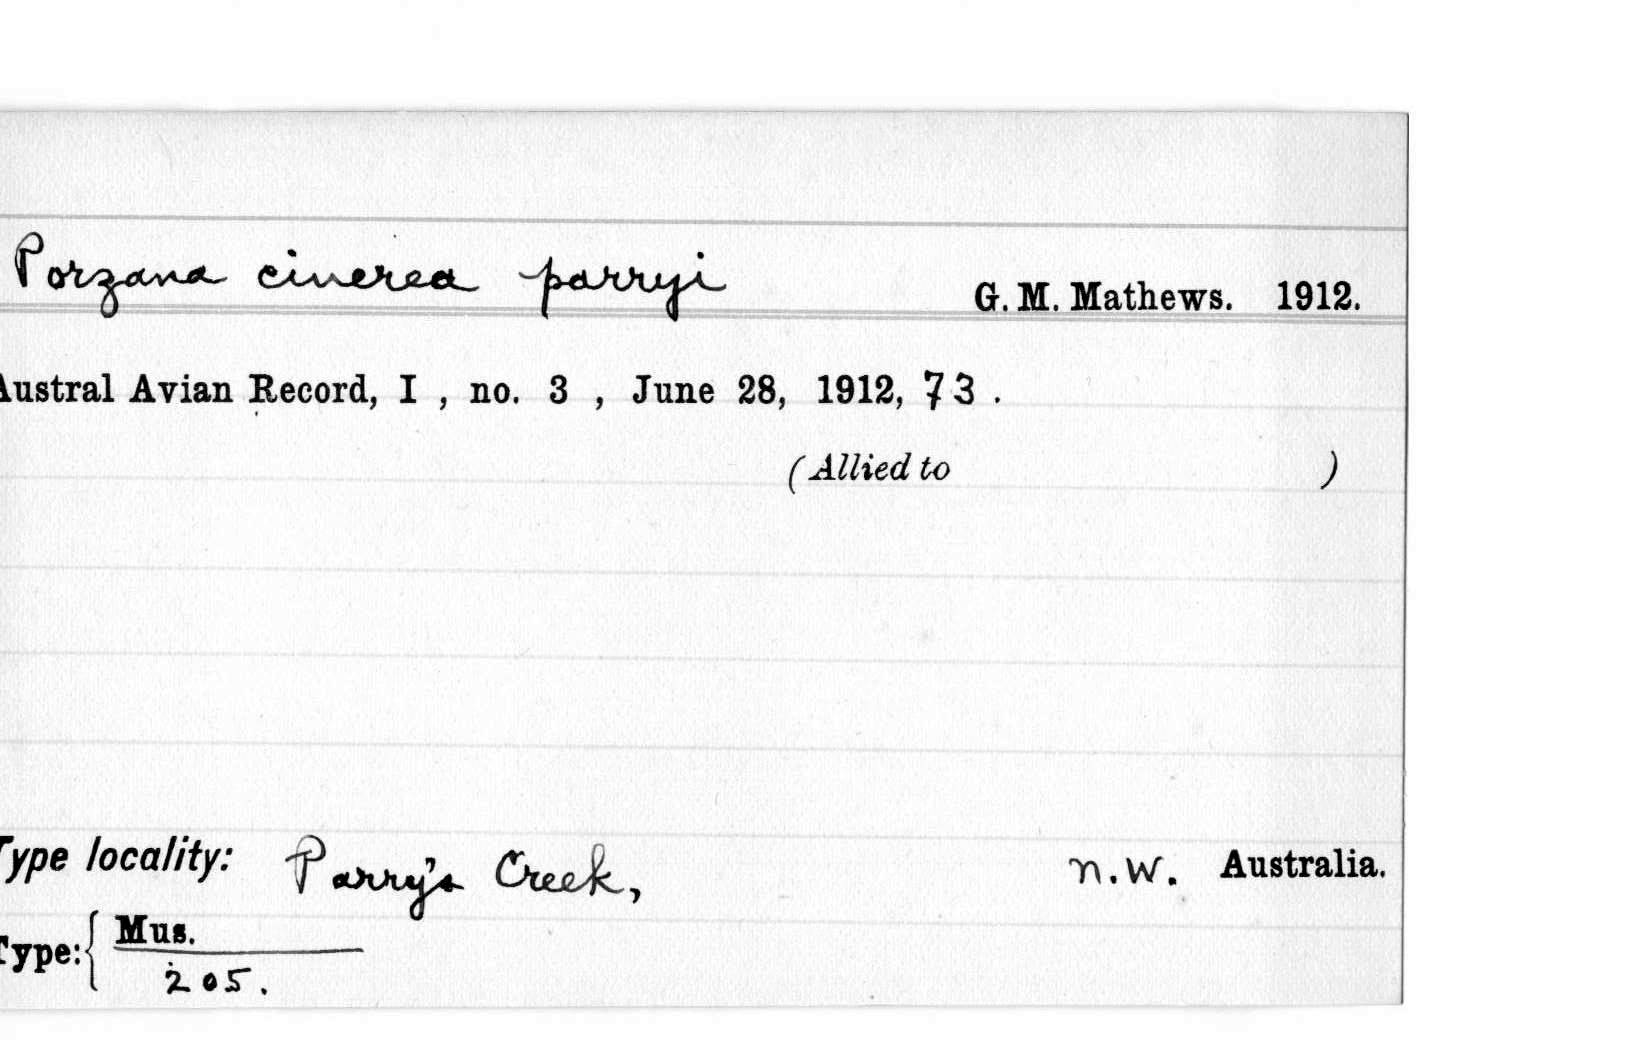 Porzana cinerea parryi G. M. Mathews. 1912.
Austral Avian Record, I , no. 3 , June 28, 1912, 73 .
(Allied to )
Type locality: Parry's Creek, n.w. Australia.
Type: { Mus.
205.